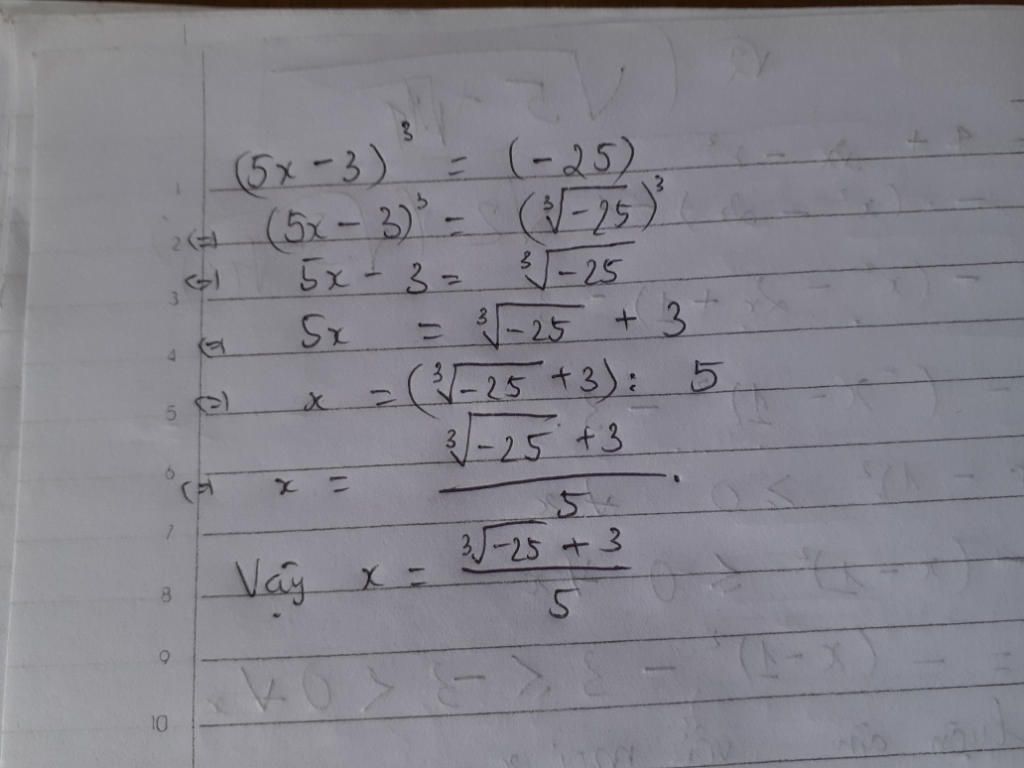 (5x - 3)³ = (-25)
1
2 (=) (5x - 3)³ = (∛-25)³
(=) 5x - 3 = ∛-25
3
4 (=) 5x = ∛-25 + 3
5 (=) x = (∛-25 + 3) : 5
6 (=) x = \frac{∛-25 + 3}{5}.
7
8 Vậy x = \frac{∛-25 + 3}{5}
9
10